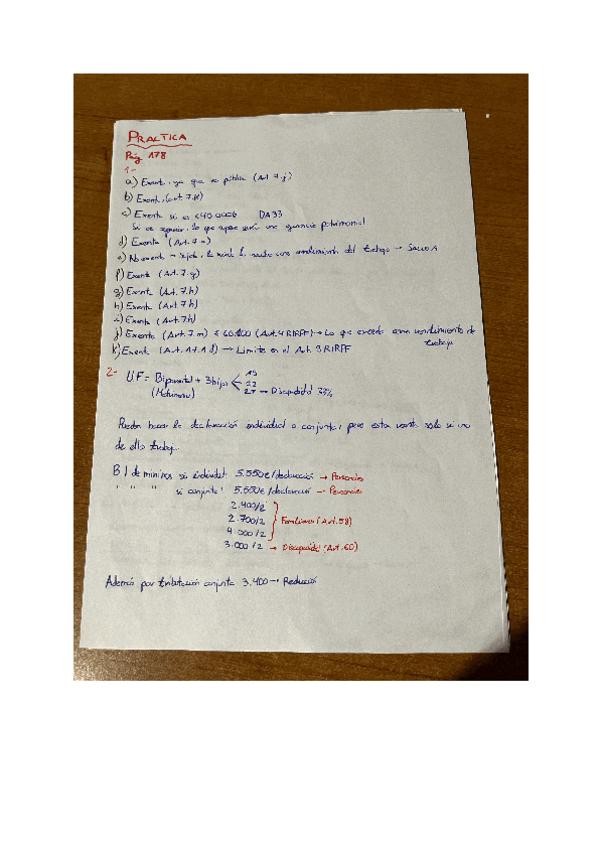 PRACTICA
Pág 178
1-
a) Exenta, ya que es pública (Art 7.j)
b) Exenta, (art. 7.k)
c) Exenta si es DA33
Si es superior, lo que supere sería una ganancia patrimonial
d) Exenta (Art. 7.
e) No exenta - rendimiento del trabajo →
f) Exenta (Art. 7.
g) Exenta (Art. 7.h)
h) Exenta (Art 7.h)
i) Exenta (Art. 7.h)
j) Exenta (Art. 7.m) 60.100 (Art. 4 RIRPF) → Lo que exceda como rendimiento de
trabajo
k) Exenta (Art. → Límite en el Art. 9 RIRPF
2- UF = Biparental + 3 hijos
(Matrimonio)
19
22
27 → Discapacidad 33%
Pueden hacer la declaración individual o conjunta, pero esta renta solo si uno
de ello trabaja.
B I de mínimos si individual: 5.550€/declaración → Personales
" " " si conjunta: 5.550€/declaración → Personales
2.400/2
2.700/2
4.000/2
Familiares (Art. 58)
3.000/2 → Discapacidad (Art. 60)
Además por tributación conjunta 3.400 → Reducción